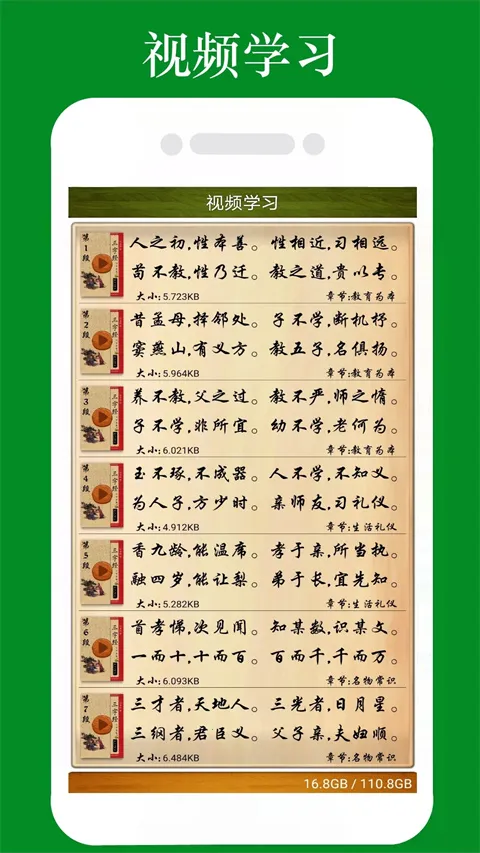 视频学习
视频学习
第1段
三字经
人之初,性本善。 性相近,习相远。
苟不教,性乃迁。 教之道,贵以专。
大小:5.723KB 章节:教育为本
第2段
三字经
昔孟母,择邻处。 子不学,断机杼。
窦燕山,有义方。 教五子,名俱扬。
大小:5.964KB 章节:教育为本
第3段
三字经
养不教,父之过。 教不严,师之惰。
子不学,非所宜。 幼不学,老何为。
大小:6.021KB 章节:教育为本
第4段
三字经
玉不琢,不成器。 人不学,不知义。
为人子,方少时。 亲师友,习礼仪。
大小:4.912KB 章节:生活礼仪
第5段
三字经
香九龄,能温席。 孝于亲,所当执。
融四岁,能让梨。 弟于长,宜先知。
大小:5.282KB 章节:生活礼仪
第6段
三字经
首孝悌,次见闻。 知某数,识某文。
一而十,十而百。 百而千,千而万。
大小:6.093KB 章节:名物常识
第7段
三字经
三才者,天地人。 三光者,日月星。
三纲者,君臣义。 父子亲,夫妇顺。
大小:6.484KB 章节:名物常识
16.8GB / 110.8GB